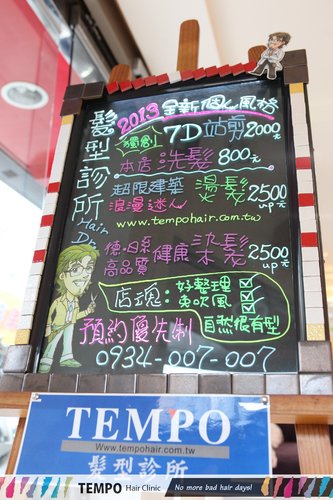 髮型診所
Hair Dr.
2013全新個人風格
獨創 7D站剪2000元
本店 洗髮 800元
超限建築 浪漫迷人 燙髮 2500元up
www.tempohair.com.tw
德.日系 高品質 健康染髮 2500元up
店魂: 好整理
束吹風
自然很有型
預約優先制
0934-007-007
TEMPO
Www.tempohair.com.tw
髮型診所
TEMPO Hair Clinic No more bad hair days!